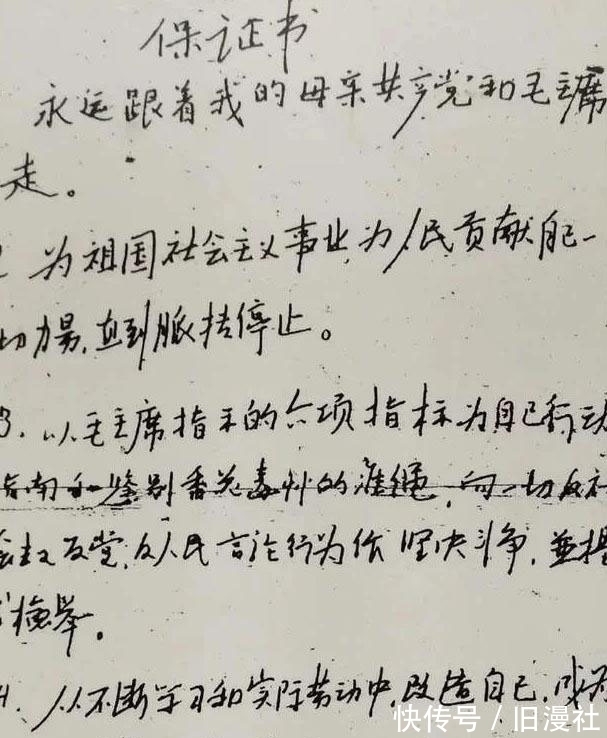 保证书
永远跟着我的母亲共产党和毛主席
走。
为祖国社会主义事业,为人民贡献自己一
切力量,直到脉搏停止。
3. 以毛主席指示的六项指标为自己行动
指南和鉴别香花毒草的准绳,向一切反社
会主义反党,反人民言论行为作坚决斗争,並提
检举。
4. 从不断学习和实际劳动中,改造自己,成为
快传号/旧漫社